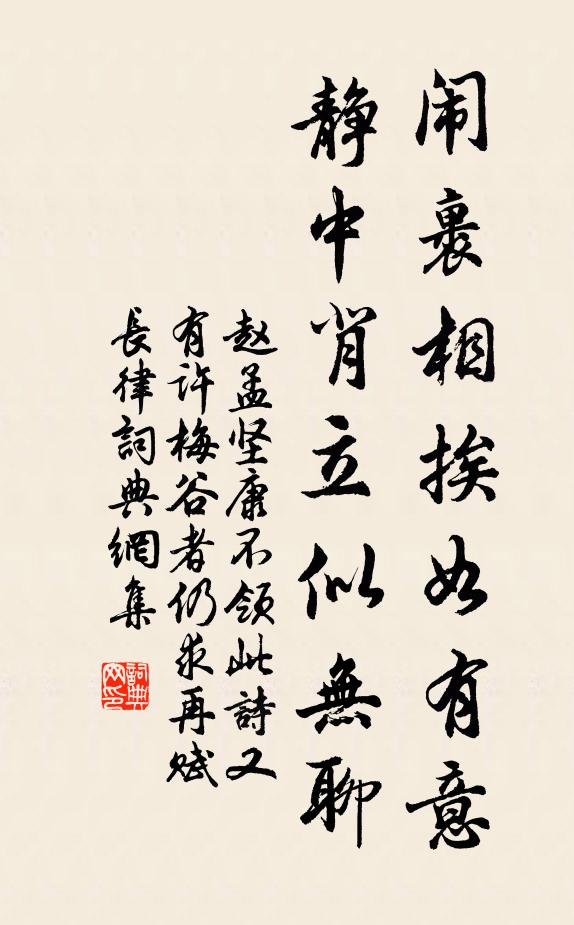 闹裏相挨如有意
静中背立似無聊
赵孟坚康不领此詩又
有许梅谷者仍求再赋
長律詞典網集
詞典网印